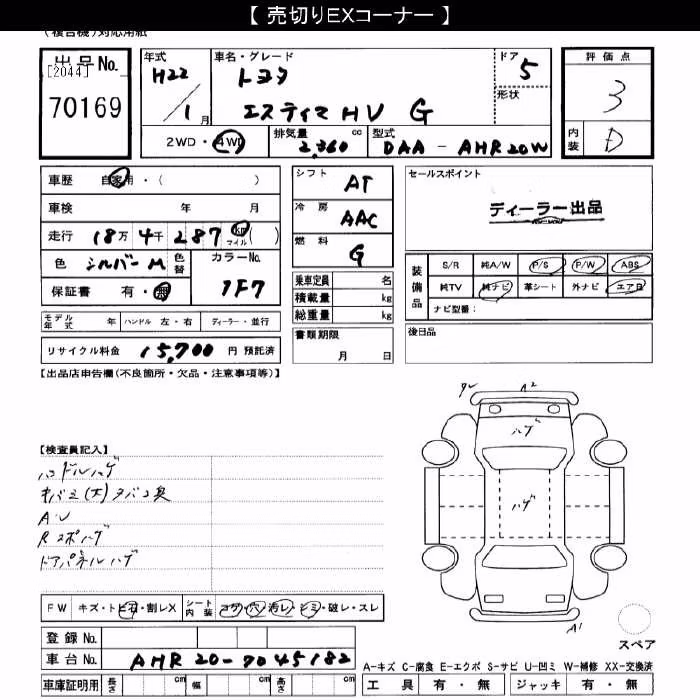 【 売切りEXコーナー 】
(複合機)対応用紙
出品No.
[2044]
70169
年式
H22
/1月
車名・グレード
トヨタ
エスティマHV G
ドア
5
形状
評価点
3
内装
D
2WD・4WD
排気量
2,360
cc
型式
DAA-AHR20W
車歴 自家用・( )
車検 年 月
走行 18万 4千 287 km マイル ( )
色 シルバーM 色替
カラーNo.
1F7
保証書 有・無
モデル年式 年 ハンドル 左・右 ディーラー・並行
リサイクル料金 15,700 円 預託済
シフト AT
冷房 AAC
燃料 G
乗車定員 名
積載量 kg
総重量 kg
書類期限
月 日
セールスポイント
ディーラー出品
装備品
S/R 純A/W P/S P/W ABS
純TV 純ナビ 革シート 外ナビ エアB
ナビ型番:
後日品
【出品店申告欄(不良箇所・欠品・注意事項等)】
【検査員記入】
ハンドルハゲ
キバミ(大)タバコ臭
AU
Rスポハゲ
ドアパネルハゲ
A2
ハゲ
ハゲ
A1
スペア
FW キズ・トビ石・割レX
シート内装 コゲ・穴・汚レ・シミ・破レ・スレ
登録No.
車台No. AHR20-7045182
車庫証明用 長さ cm 幅 cm 高さ cm
A-キズ C-腐食 E-エクボ S-サビ U-凹ミ W-補修 XX-交換済
工具 有・無 ジャッキ 有・無